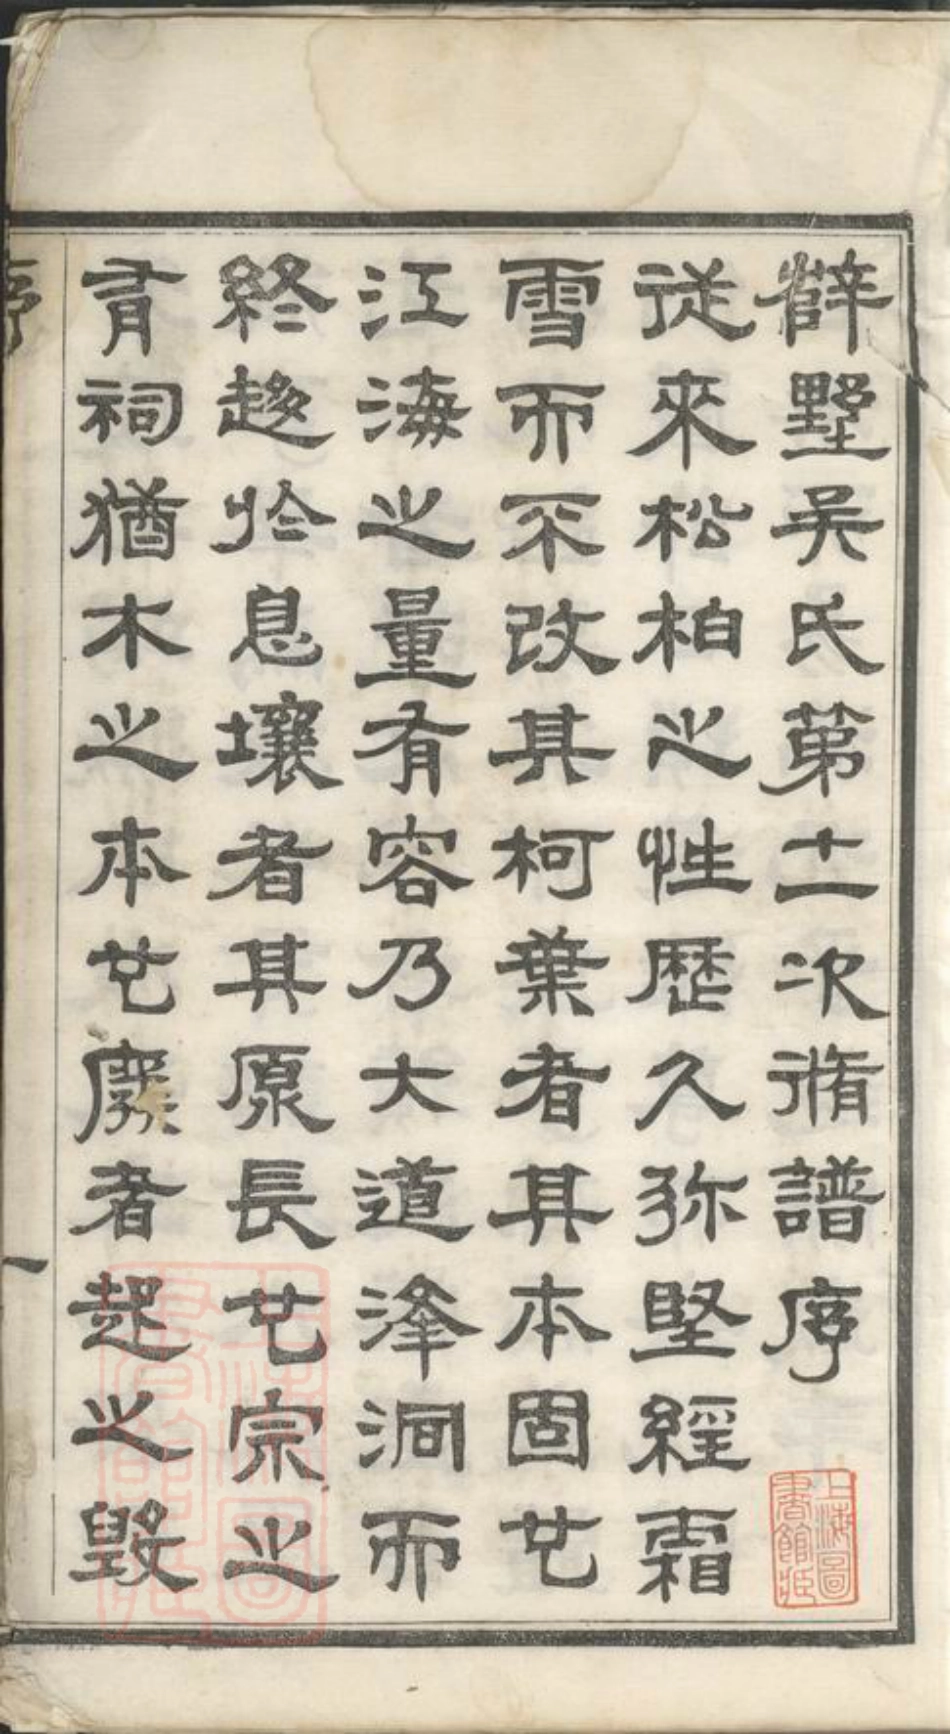 薛墅吳氏第十二次脩譜序
從來松柏之性歷久弥堅經霜
雪而不改其柯葉者其本固也
江海之量有容乃大道澤洞而
終趍於息壤者其原長也宗之
有祠猶木之本也廢者起之毀
序
一
上海圖書館藏